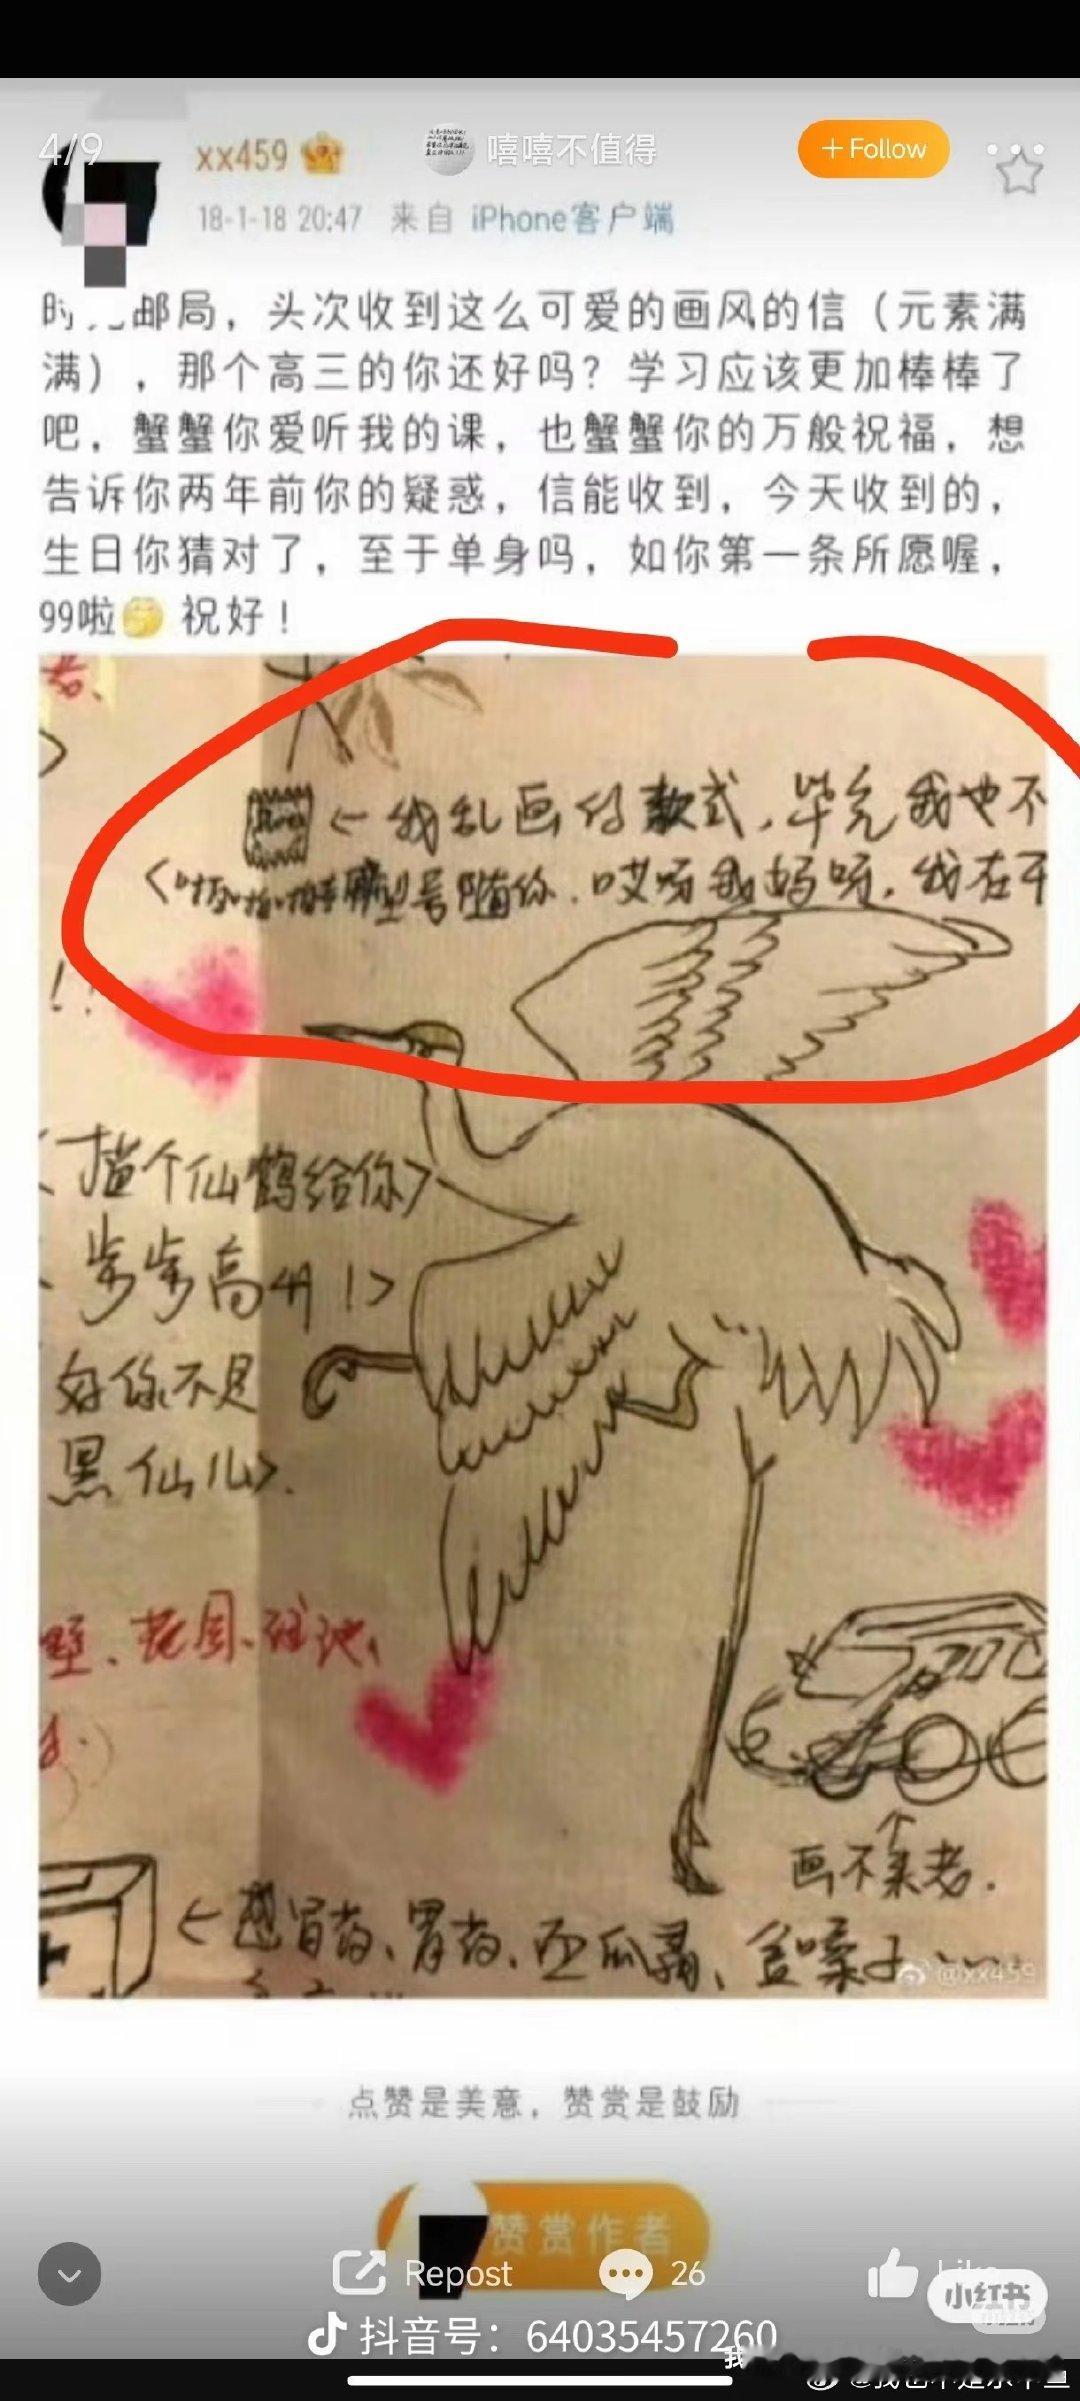 4/9
xx459
嘻嘻不值得
+Follow
18-1-18 20:47 来自 iPhone客户端
邮局，头次收到这么可爱的画风的信（元素满
满），那个高三的你还好吗？学习应该更加棒棒了
吧，蟹蟹你爱听我的课，也蟹蟹你的万般祝福，想
告诉你两年前你的疑惑，信能收到，今天收到的，
生日你猜对了，至于单身吗，如你第一条所愿喔，
99啦 祝好！
←我乱画的款式，毕竟我也不
型号随你．哎呀我妈呀，我在干
！！
<描个仙鹤给你>
步步高升！>
好你不是
黑仙儿>．
墅、花园、
画不来老．
←感冒药、胃药、
@xx459
点赞是美意，赞赏是鼓励
赞赏作者
Repost
26
Like
小红书
抖音号：64035457260
我